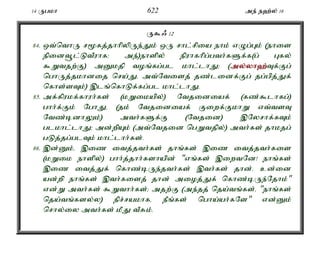 14 ருபமா 622 அந் நஹ்ல் 16
ருகூஃ 12
84. ஒவ்வொரு சமூகத்தாரிலிருந்தும் ஒரு சாட்சியை நாம் எழுப்பும் (நாளை
நினைவூட்டுவீராக; அந்நாளில்) நிராகரிப்பவர்களுக்(குப் புகல்
கூறுவதற்கு) அனுமதி வழங்கப்பட மாட்டாது; (அல்லாஹ்வுக்குப்
பொருத்தமானதை செய்து, அவ்வேளைத் தண்டனைக்குத் தப்பித்துக்
கொள்ளவும்) இடங்கொடுக்கப்பட மாட்டாது.
85. அக்கிரமக்காரர்கள் (மறுமையில்) வேதனையைக் (கண்கூடாகப்)
பார்க்கும் போது, (தம் வேதனையைக் குறைக்குமாறு எவ்வளவு
வேண்டினாலும்) அவர்களுக்கு (வேதனை) இலேசாக்கவும்
படமாட்டாது; அன்றியும் (அவ்வேதனை பெறுவதில்) அவர்கள் தாமதப்
படுத்தப்படவும் மாட்டார்கள்.
86. இன்னும், இணை வைத்தவர்கள் தாங்கள் இணை வைத்தவர்களை
(மறுமை நாளில்) பார்த்தார்களாயின் "எங்கள் இறைவனே! நாங்கள்
இணை வைத்துக் கொண்டிருந்தவர்கள் இவர்கள் தான். உன்னை
யன்றி நாங்கள் இவர்களைத் தான் அழைத்துக் கொண்டிருந்தோம்"
என்று அவர்கள் கூறுவார்கள்; அதற்கு (அந்தத் தெய்வங்கள், "நாங்கள்
தெய்வங்களல்ல) நிச்சயமாக, நீங்கள் பொய்யர்களே" என்னும்
சொல்லை அவர்கள் மீது வீசும்.